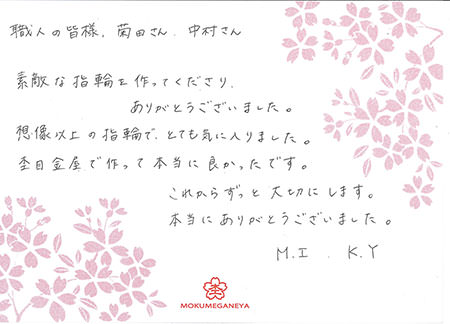 職人の皆様、菊田さん、中村さん
素敵な指輪を作ってくださり、
ありがとうございました。
想像以上の指輪で、とても気に入りました。
杢目金屋で作って本当に良かったです。
これからずっと大切にします。
本当にありがとうございました。
M.I　K.Y
MOKUMEGANEYA